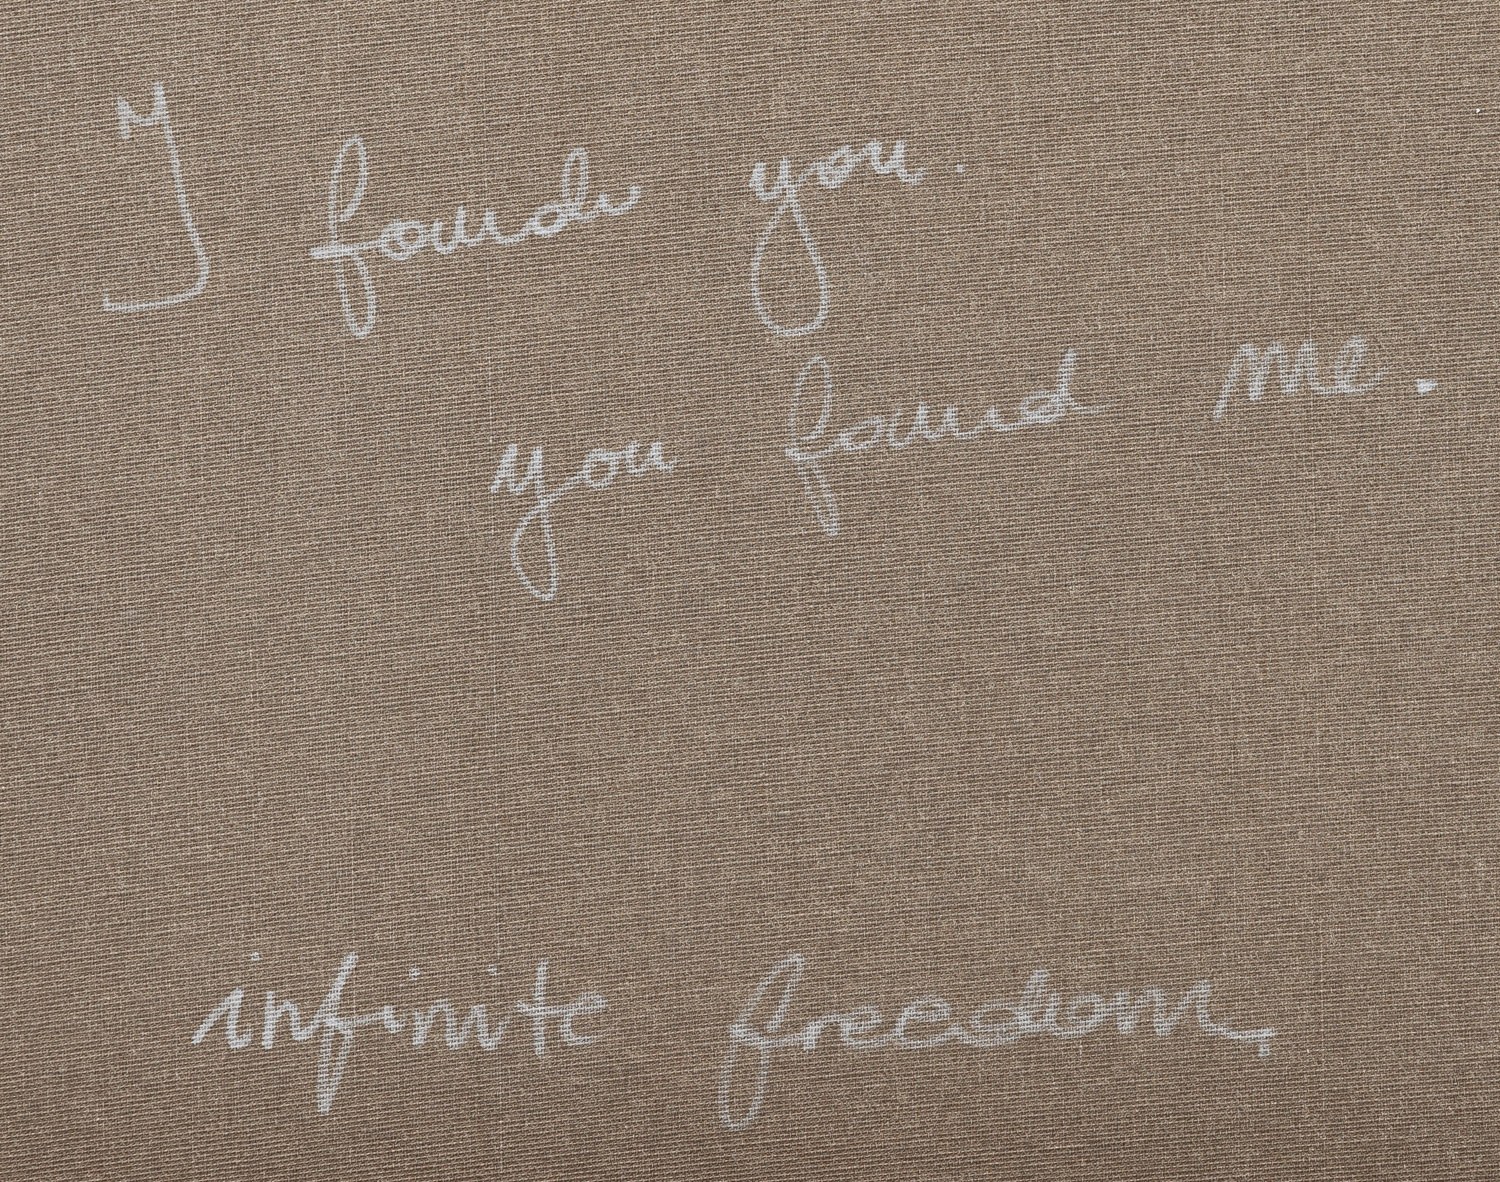 I found you.
you found me.
infinite freedom,